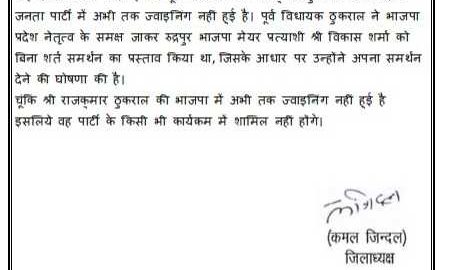 जनता पार्टी में अभी तक ज्वाइनिंग नहीं हुई है। पूर्व विधायक ठुकराल ने भाजपा
प्रदेश नेतृत्व के समक्ष जाकर रुद्रपुर भाजपा मेयर प्रत्याशी श्री विकास शर्मा को
बिना शर्त समर्थन का पस्ताव किया था, जिसके आधार पर उन्होंने अपना समर्थन
देने की घोषणा की है।
चूंकि श्री राजकुमार ठुकराल की भाजपा में अभी तक ज्वाइनिंग नही हुई है
इसलिये वह पार्टी के किसी भी कार्यकम में शामिल नही होंगे।
(कमल जिन्दल)
जिलाध्यक्ष